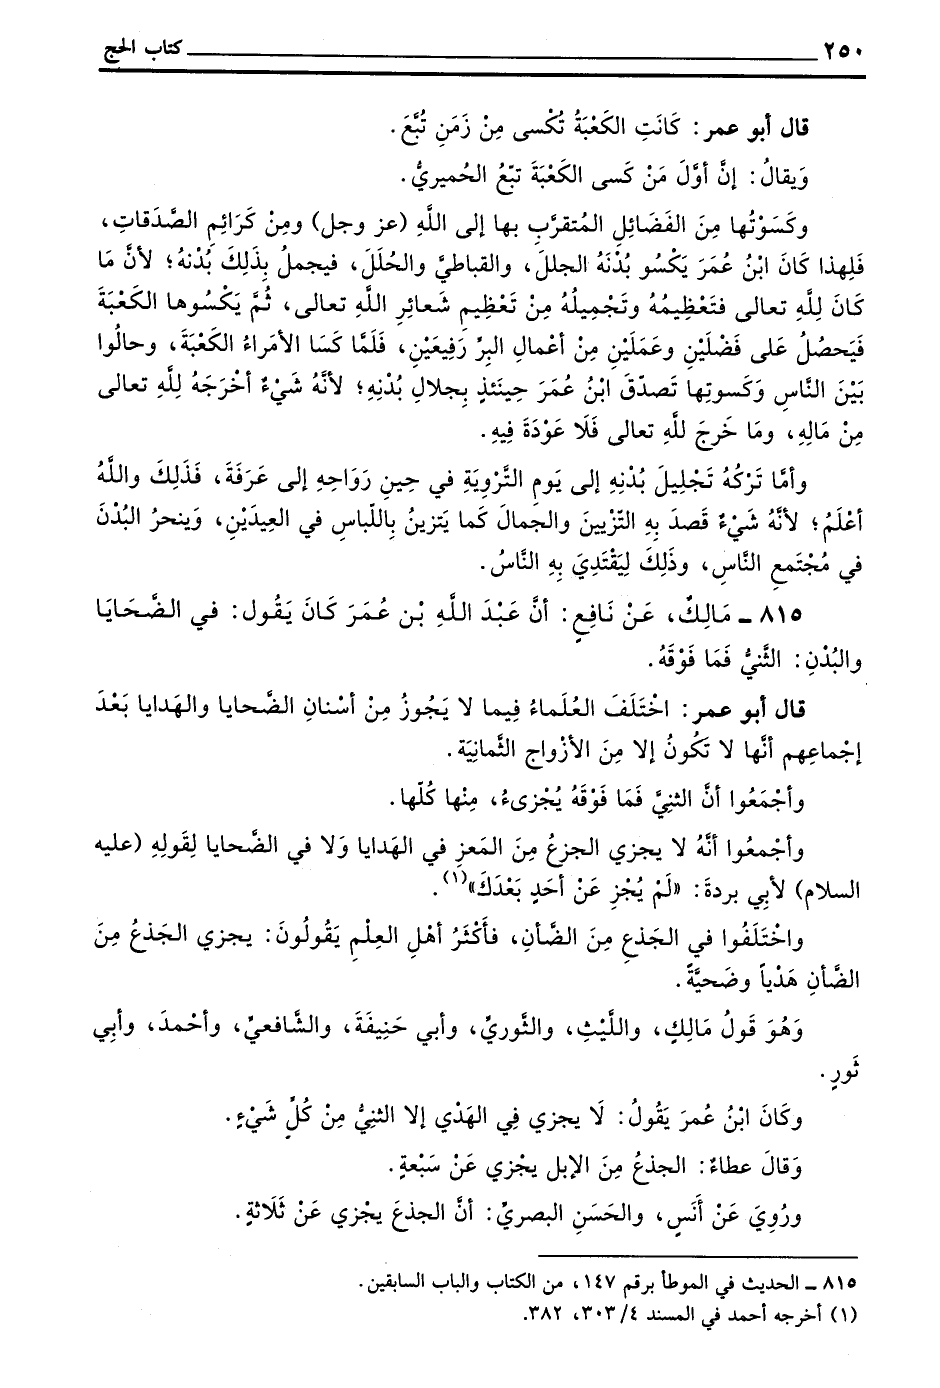 ٢٥٠ كتاب الحج
قال أبو عمر: كَانَتِ الكَعْبَةُ تُكْسى مِنْ زَمَنِ تُبَّعَ.
وَيقالُ: إنَّ أوَّلَ مَنْ كَسى الكَعْبَةَ تبّعُ الحُميريُّ.
وكَسَوْتُها مِنَ الفَضَائلِ المُتقرَّبِ بها إلى اللَّهِ (عز وجل) ومِنْ كَرَائِمِ الصَّدَقاتِ،
فَلِهذا كَانَ ابْنُ عُمَرَ يَكْسُو بُدْنَهُ الجللَ، والقباطيَّ والحُلَلَ، فيجملُ بِذَلِكَ بُدْنهُ؛ لأنَّ مَا
كَانَ لِلَّهِ تعالى فتَعْظِيمُهُ وتَجْمِيلُهُ مِنْ تَعْظِيمِ شَعائرِ اللَّهِ تعالى، ثُمَّ يَكْسُوها الكَعْبَةَ
فَيَحصُلُ عَلى فَضْلَيْنِ وعَمَلَيْنِ مِنْ أعْمالِ البِرِّ رَفِيعَيْنِ، فَلَمَّا كَسَا الأمَراءُ الكَعْبَةَ، وحالُوا
بَيْنَ النَّاسِ وَكَسوتِها تَصدّقَ ابْنُ عُمَرَ حِينَئذٍ بِجلالِ بُدْنِهِ؛ لأنَّهُ شَيْءٌ أخْرَجَهُ لِلَّهِ تعالى
مِنْ مَالِهِ، ومَا خَرجَ للَّهِ تعالى فَلَا عَوْدَةَ فِيهِ.
وأمَّا تَرْكُهُ تَجْلِيلَ بُدْنِهِ إلى يَومِ التَّرْوِيَةِ في حِينِ رَوَاحِهِ إلى عَرَفَةَ، فَذَلِكَ واللَّهُ
أعْلَمُ؛ لأنَّهُ شَيْءٌ قَصدَ بِهِ التّزْيينَ والجمالَ كَما يَتزينُ بِاللّباسِ في العِيدَيْنِ، وَينحرُ البُدْنَ
في مُجْتَمعِ النَّاسِ، وذَلِكَ لِيَقْتَدِيَ بِهِ النَّاسُ.
٨١٥ ـ مَالِكٌ، عَنْ نَافِعٍ: أنَّ عَبْدَ اللَّهِ بْنِ عُمَرَ كَانَ يَقُول: في الضَّحَايَا
والبُدْنِ: الثَّنيُّ فَمَا فَوْقَهُ.
قال أبو عمر: اخْتَلَفَ العُلَماءُ فِيما لا يَجُوزُ مِنْ أسْنانِ الضَّحايا والهَدايا بَعْدَ
إجْماعِهم أنَّها لا تَكُونُ إلا مِنَ الأزْواجِ الثَّمانِيَةِ.
وأجْمَعُوا أنَّ الثنيَّ فَمَا فَوْقَهُ يُجْزِىءُ، مِنْها كُلّها.
وأجْمعُوا أنَّهُ لا يجزي الجزعُ مِنَ المَعزِ في الهَدَايا وَلا في الضَّحايا لِقَولِهِ (عليه
السلام) لأبِي بردةَ: «لَمْ يُجْزِ عَنْ أحَدٍ بَعْدَكَ»(١).
واخْتَلَفُوا في الجَذعِ مِنَ الضَّأنِ، فأكْثَرُ أهْلِ العِلْمِ يَقُولُونَ: يجزي الجَذعُ مِنَ
الضَّأنِ هَدْياً وضَحيَّةً.
وَهُوَ قَولُ مَالِكٍ، واللَّيْثِ، والثَّوريِّ، وأبي حَنِيفَةَ، والشَّافعيِّ، وأحْمدَ، وأبِي
ثَورٍ.
وكَانَ ابْنُ عُمرَ يَقُولُ: لَا يجزي فِي الهَدْيِ إلا الثنِيُّ مِنْ كُلِّ شَيْءٍ.
وَقَالَ عطاءٌ: الجذعُ مِنَ الإبل يجْزي عَنْ سَبْعةٍ.
ورُوِيَ عَنْ أنَسٍ، والحَسَنِ البصريِّ: أنَّ الجذعَ يجْزي عَنْ ثَلَاثةٍ.
٨١٥ ـ الحديث في الموطأ برقم ١٤٧، من الكتاب والباب السابقين.
(١) أخرجه أحمد في المسند ٣٠٣/٤، ٣٨٢.